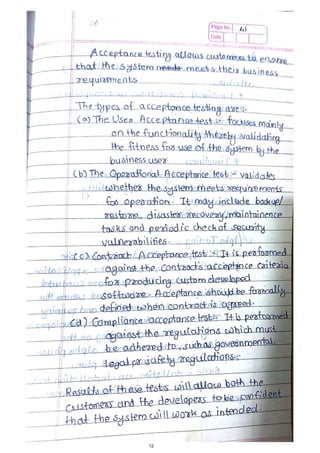 Page No. 41
Date
Acceptance testing allows customers to ensure
that the system meets their business
requirements
The types of acceptance testing are:-
(a) The User Acceptance test :- focuses mainly
on the functionality thereby validating
the fitness for use of the system by the
business user
(b) The Operational Acceptance test :- validates
whether the system meets requirements
for operation. It may include backup/
restore, disaster recovery, maintainence
tasks and periodic check of security
vulnerabilities.
(c) Contract Acceptance test :- It is performed
against the Contract's acceptance criteria
for producing custom developed
software. Acceptance should be formally
defined when contract is agreed.
(d) Compliance acceptance test :- It is performed
against the regulations which must
be adhered to, such as governmental,
legal or safety regulations.
Results of these tests will allow both the
customers and the developers to be confident
that the system will work as intended.
12